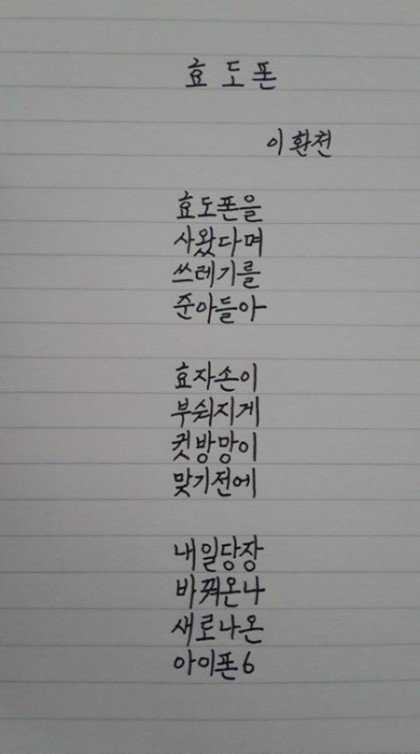 효도폰
이환천
효도폰을
사왔다며
쓰레기를
준아들아
효자손이
부숴지게
컷방망이
맞기전에
내일당장
바꿔온나
새로나온
아이폰6